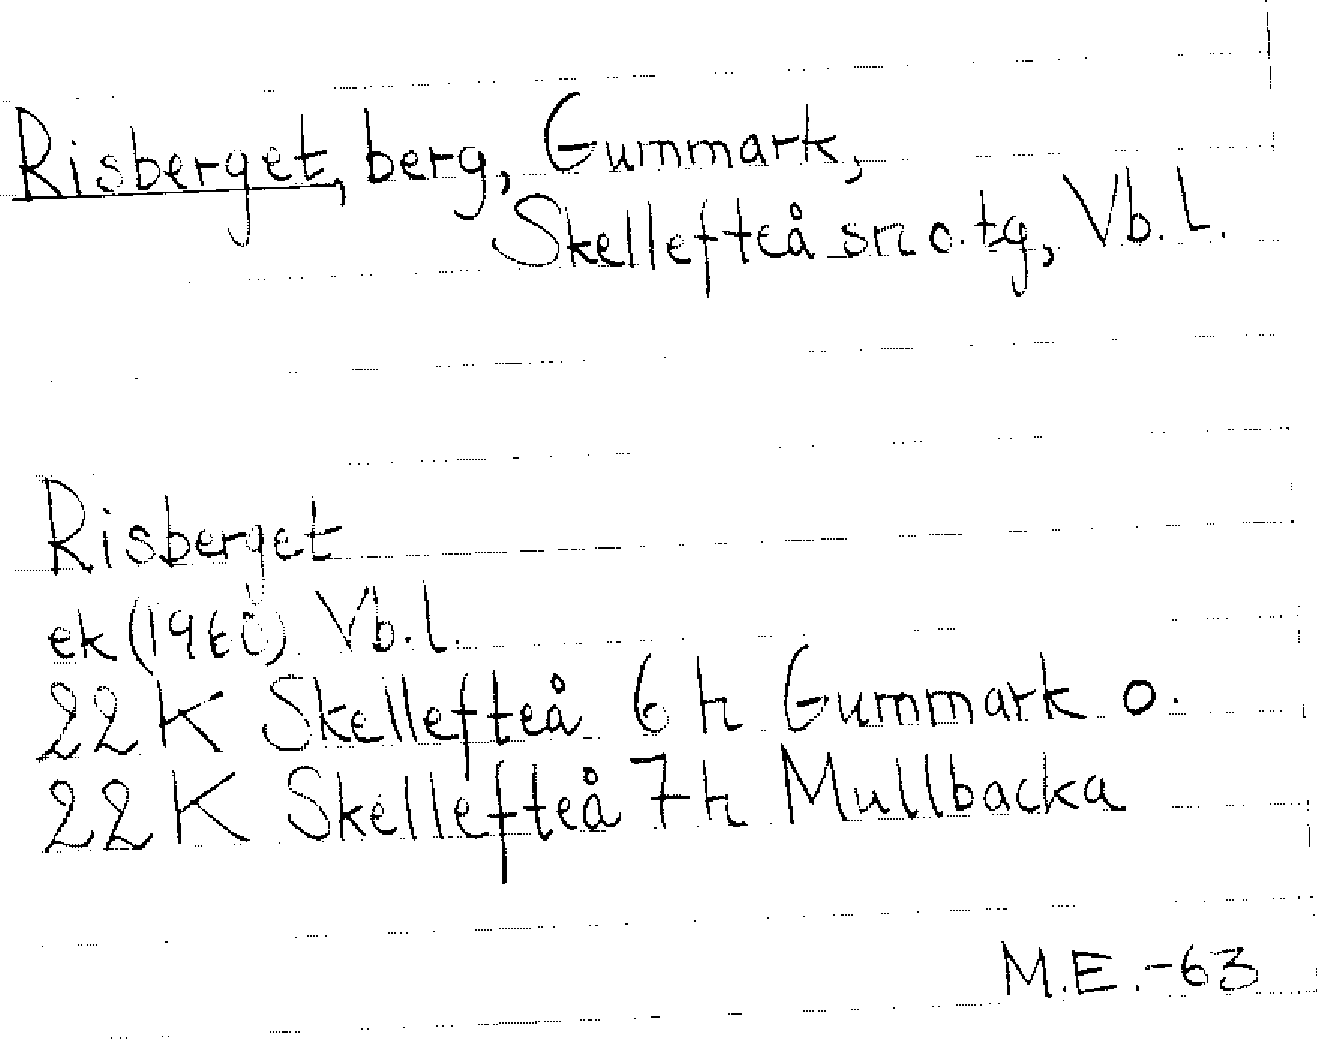 Risberget, berg, Gummark,
Skellefteå sn o. tg, Vb. l.
Risberget
ek (1961) Vb. l.
22 K Skellefteå 6 h Gummark o.
22 K Skellefteå 7 h Mullbacka
M.E. -63